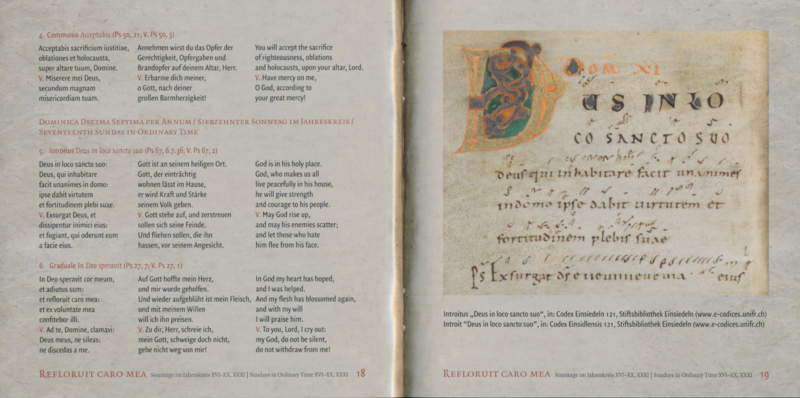 4. Communio Acceptabis (Ps 50, 21; V. Ps 50, 3)
Acceptabis sacrificium iustitiae,
oblationes et holocausta,
super altare tuum, Domine.
V. Miserere mei Deus,
secundum magnam
misericordiam tuam.
Annehmen wirst du das Opfer der
Gerechtigkeit, Opfergaben und
Brandopfer auf deinem Altar, Herr.
V. Erbarme dich meiner,
o Gott, nach deiner
großen Barmherzigkeit!
You will accept the sacrifice
of righteousness, oblations
and holocausts, upon your altar, Lord.
V. Have mercy on me,
O God, according to
your great mercy!
Dominica Decima Septima per Annum / Siebzehnter Sonntag im Jahreskreis /
Seventeenth Sunday in Ordinary Time
5. Introitus Deus in loco sancto suo (Ps 67, 6.7.36; V. Ps 67, 2)
Deus in loco sancto suo:
Deus, qui inhabitare
facit unanimes in domo:
ipse dabit virtutem
et fortitudinem plebi suae.
V. Exsurgat Deus, et
dissipentur inimici eius:
et fugiant, qui oderunt eum
a facie eius.
Gott ist an seinem heiligen Ort.
Gott, der einträchtig
wohnen lässt im Hause,
er wird Kraft und Stärke
seinem Volk geben.
V. Gott stehe auf, und zerstreuen
sollen sich seine Feinde.
Und fliehen sollen, die ihn
hassen, vor seinem Angesicht.
God is in his holy place.
God, who makes us all
live peacefully in his house,
he will give strength
and courage to his people.
V. May God rise up,
and may his enemies scatter;
and let those who hate
him flee from his face.
6. Graduale In Deo speravit (Ps 27, 7; V. Ps 27, 1)
In Deo speravit cor meum,
et adiutus sum:
et refloruit caro mea:
et ex voluntate mea
confitebor illi.
V. Ad te, Domine, clamavi:
Deus meus, ne sileas:
ne discedas a me.
Auf Gott hoffte mein Herz,
und mir wurde geholfen.
Und wieder aufgeblüht ist mein Fleisch,
und mit meinem Willen
will ich ihn preisen.
V. Zu dir, Herr, schreie ich,
mein Gott, schweige doch nicht,
gehe nicht weg von mir!
In God my heart has hoped,
and I was helped.
And my flesh has blossomed again,
and with my will
I will praise him.
V. To you, Lord, I cry out:
my God, do not be silent,
do not withdraw from me!
Refloruit caro mea Sonntage im Jahreskreis XVI–XX, XXXI | Sundays in Ordinary Time XVI–XX, XXXI 18
DOM XI
D
EUS IN LO
CO SANCTO SUO
deus qui inhabitare facit unanimes
in domo ipse dabit uirtutem et
fortitudinem plebis suae
Ps Exsurgat ds eius
Introitus „Deus in loco sancto suo“, in: Codex Einsiedeln 121, Stiftsbibliothek Einsiedeln (www.e-codices.unifr.ch)
Introit “Deus in loco sancto suo”, in: Codex Einsidlensis 121, Stiftsbibliothek Einsiedeln (www.e-codices.unifr.ch)
Refloruit caro mea Sonntage im Jahreskreis XVI–XX, XXXI | Sundays in Ordinary Time XVI–XX, XXXI 19